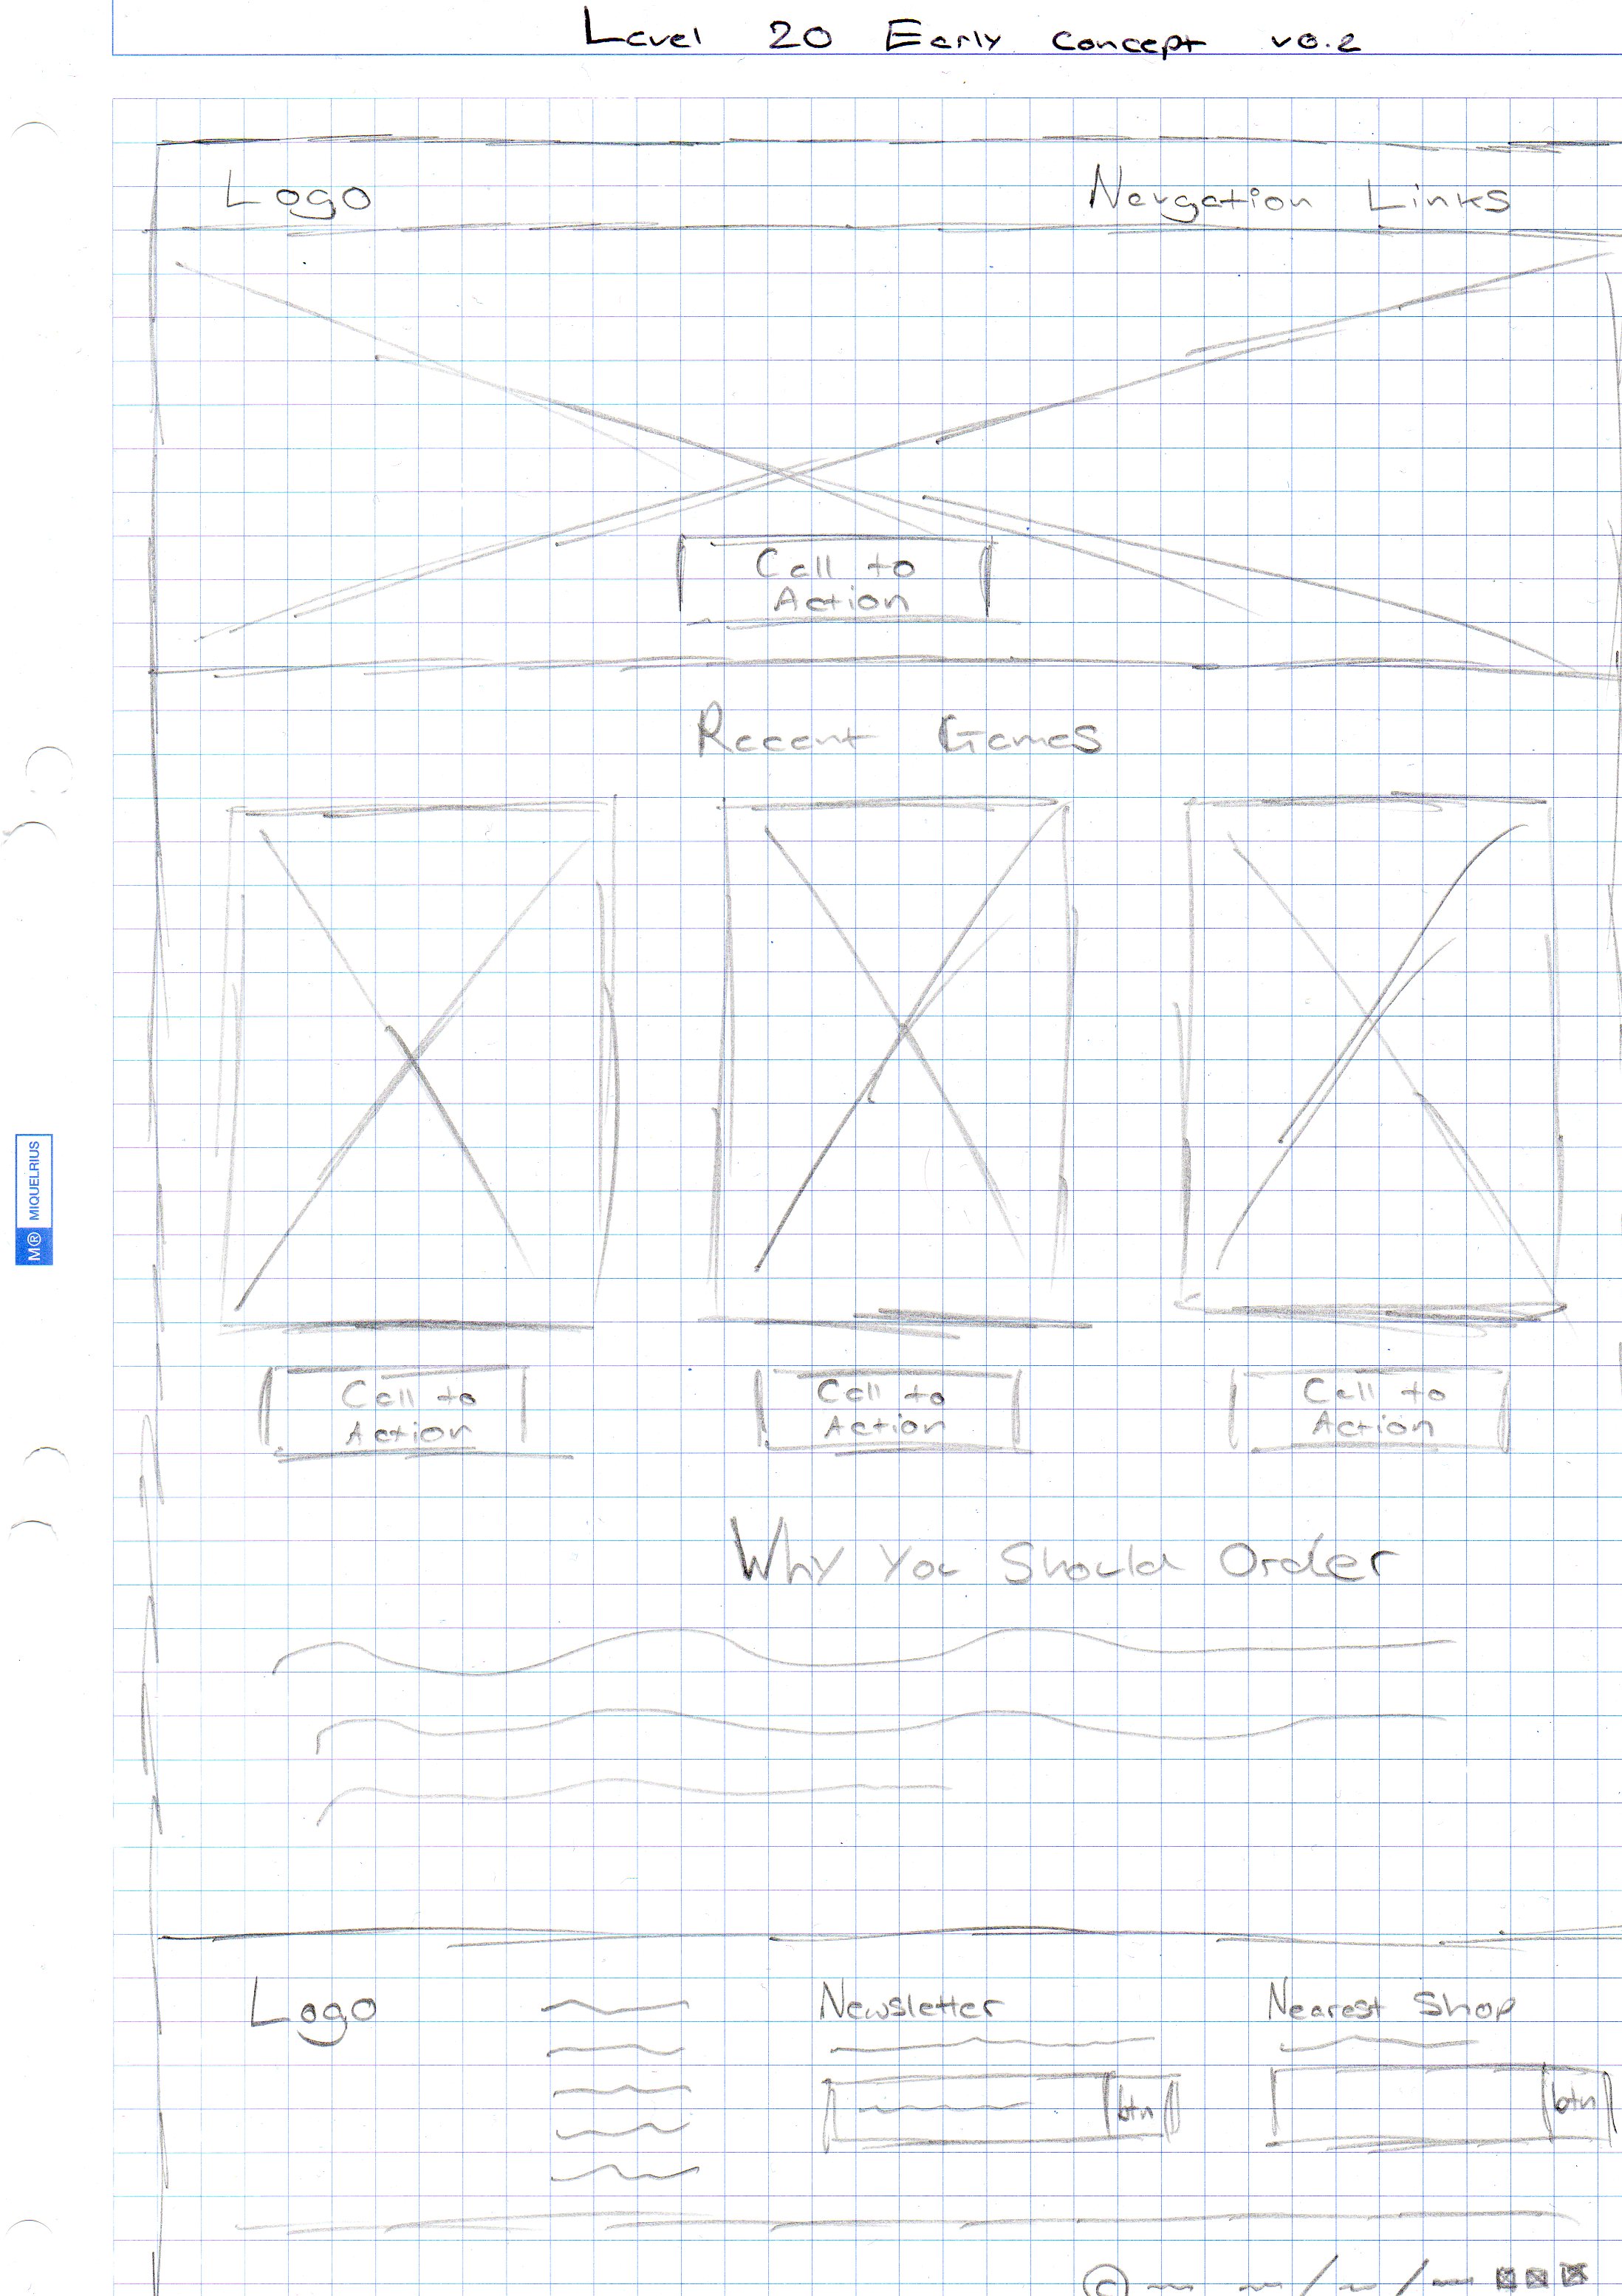 Level 20 Early Concept v0.2
Logo Navgation Links
Call to
Action
Recent Games
Call to
Action
Call to
Action
Call to
Action
Why You Should Order
Logo
Newsletter
btn
Nearest Shop
btn
©
M® MIQUELRIUS